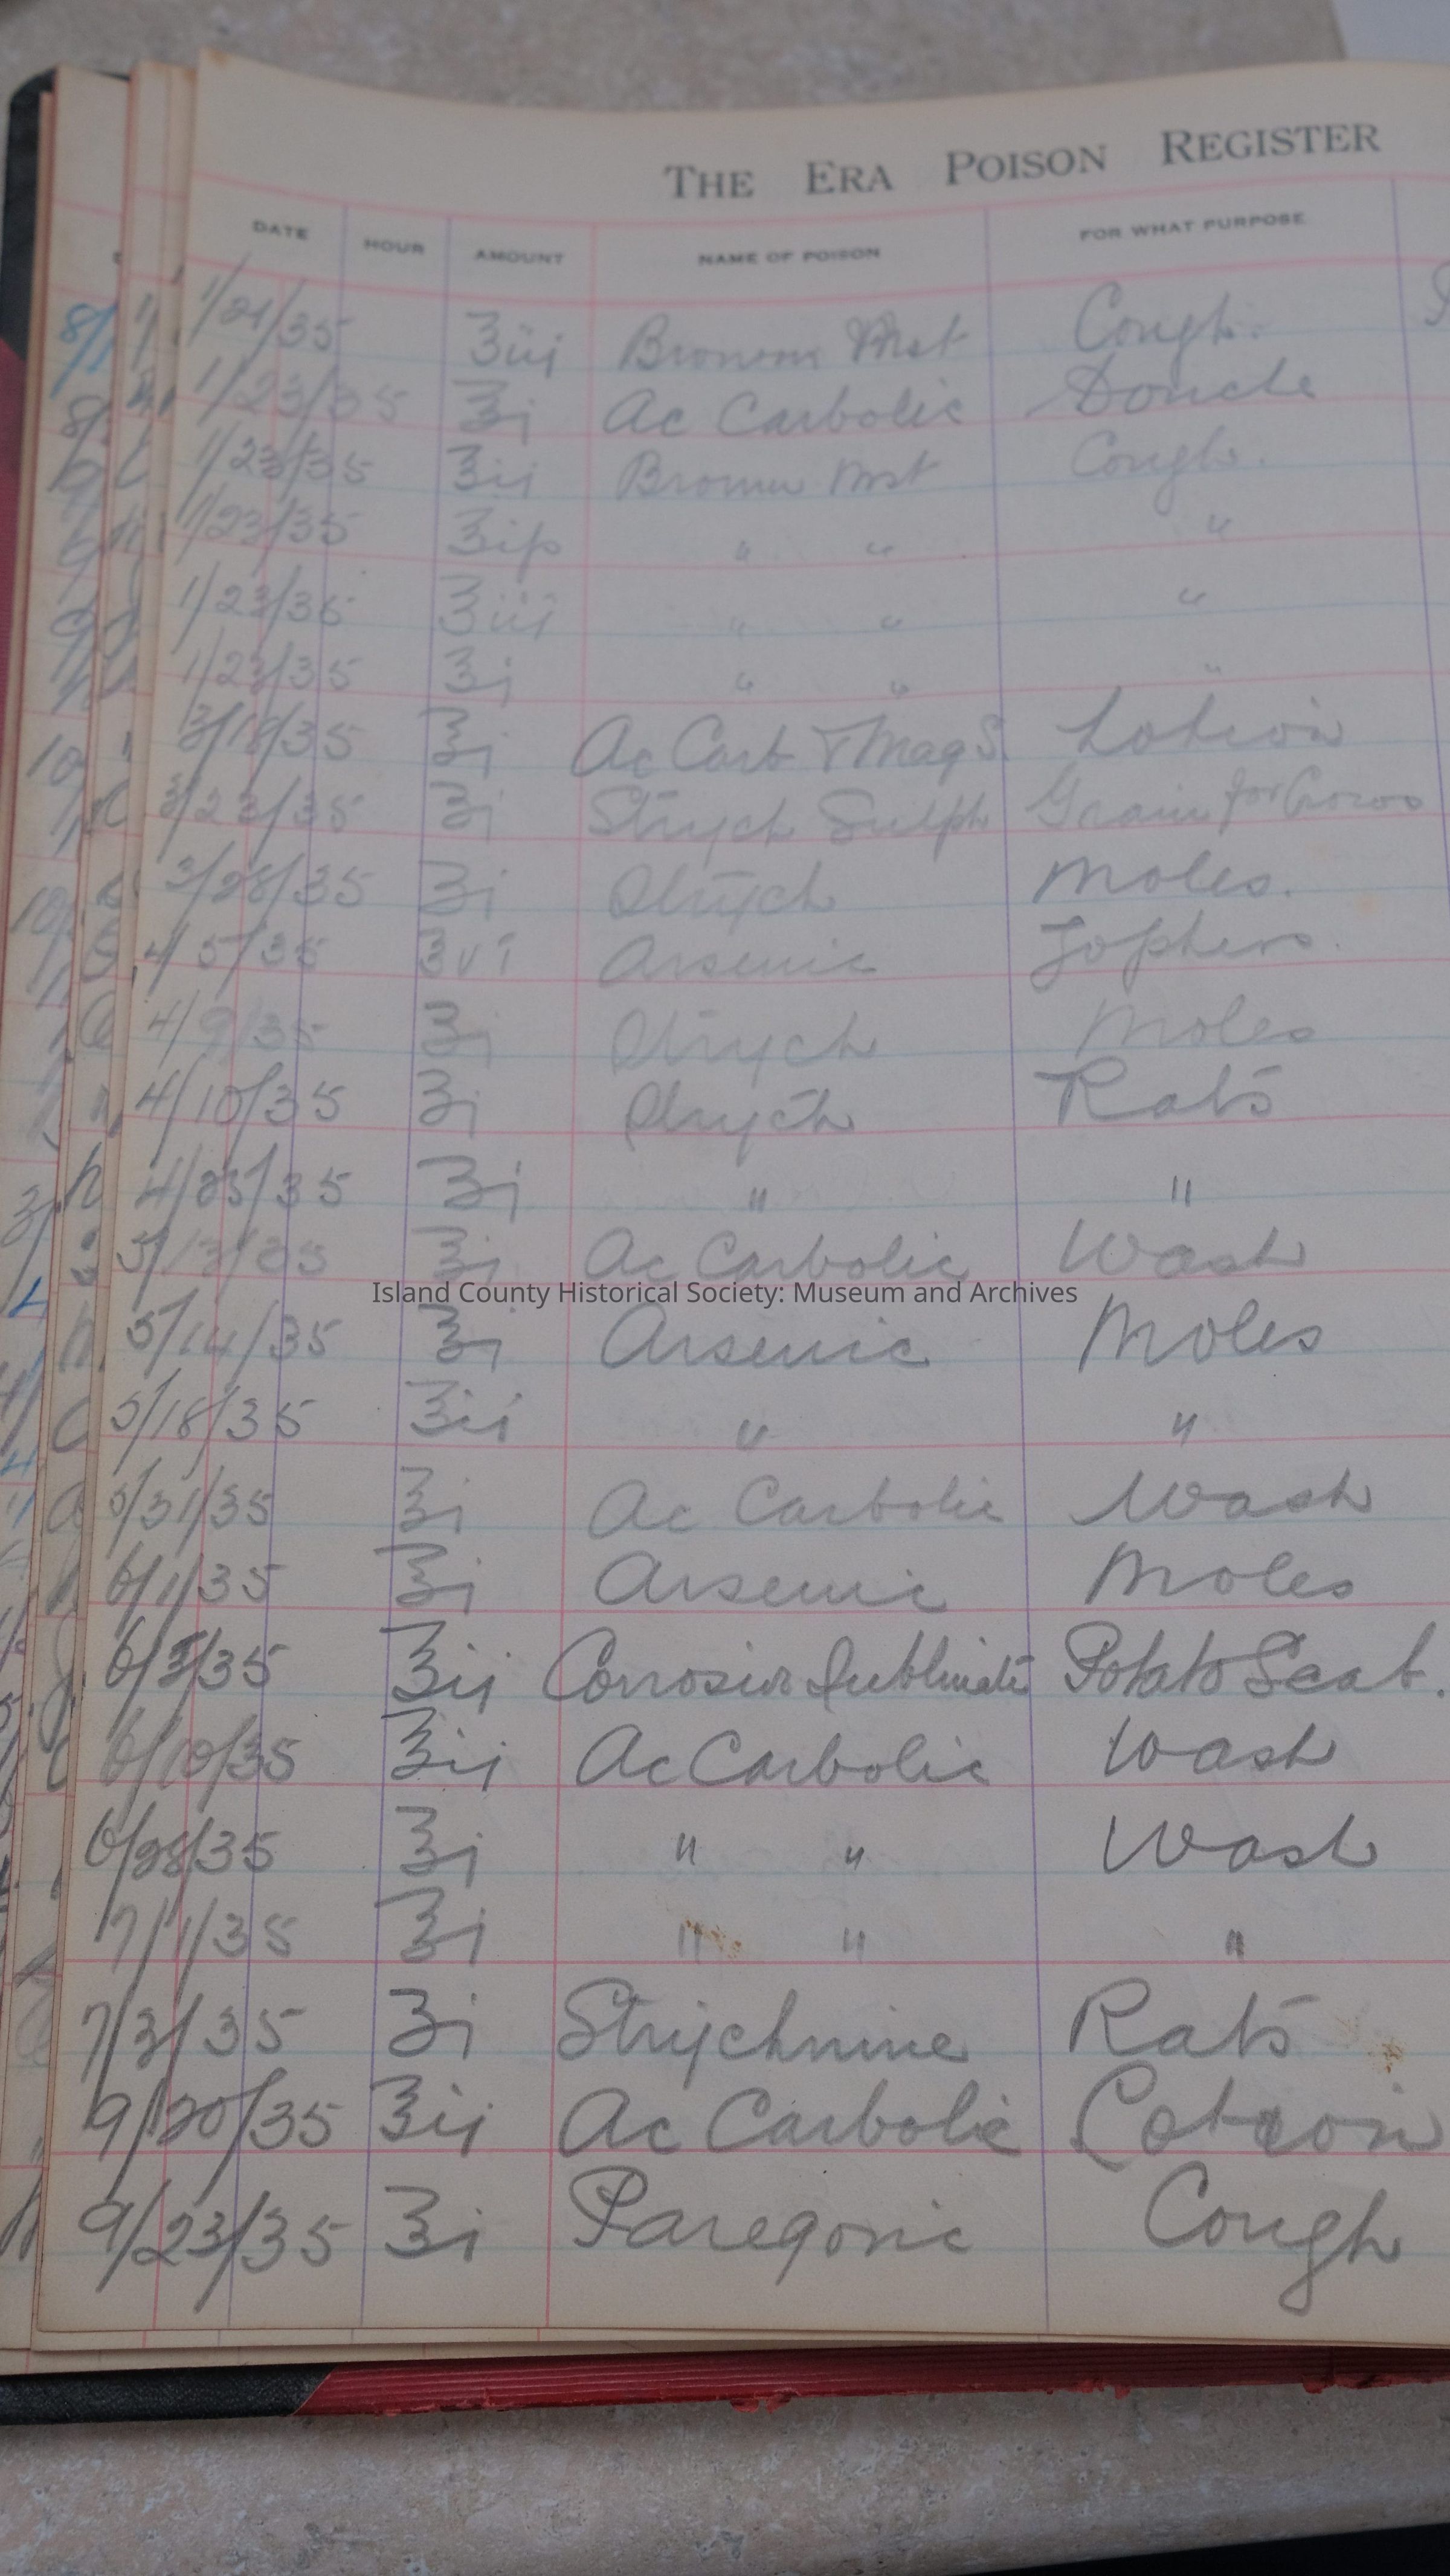 THE ERA POISON REGISTER
DATE HOUR AMOUNT NAME OF POISON FOR WHAT PURPOSE
1/21/35 ℥iii Mist Cough.
1/23/35 ℥i Ac Carbolic Douche
1/23/35 ℥ii Mist Cough.
1/23/35 " " "
1/23/35 ℥iii " " "
1/23/35 ℥i " " "
3/18/35 ℥i Ac Carb & Mag S. Lotion
3/23/35 ℥i Strych Sulph Grain for Crows
3/28/35 ℥i Strych Moles.
4/5/35 ℥vi Arsenic Gophers.
4/9/35 ℥i Strych Moles
4/10/35 ℥i Strych Rats
4/25/35 ℥i " "
5/13/35 ℥i Ac Carbolic Wash
5/14/35 ℥i Arsenic Moles
5/18/35 ℥ii " "
5/31/35 ℥i Ac Carbolic Wash
6/1/35 ℥i Arsenic Moles
6/5/35 ℥ii Corrosive Sublimate Potato Scab.
6/10/35 ℥ii Ac Carbolic Wash
6/28/35 ℥i " " Wash
7/1/35 ℥i " " "
7/3/35 ℥i Strychnine Rats
9/20/35 ℥ii Ac Carbolic Lotion
9/23/35 ℥i Paregoric Cough
Island County Historical Society: Museum and Archives